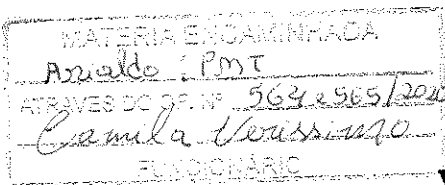 MATÉRIA ENCAMINHADA
Arialdo : PMT
ATRAVÉS DO OF. Nº 564 e 565/2020
Camila Verissimo
FUNCIONÁRIO